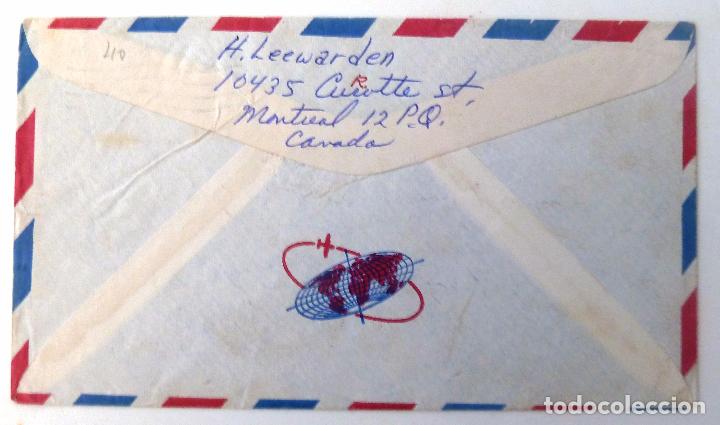 40
H. Leewarden
10435 Curotte st,
Montreal 12 P.Q.
Canada
todocoleccion